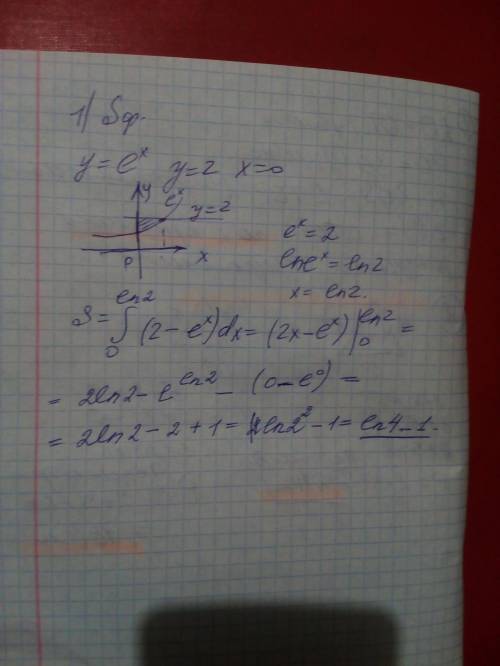 1) Sф.
y = e^x y = 2 x = 0
y
e^x
y = 2
x
e^x = 2
ln e^x = ln 2
x = ln 2.
S = ∫₀^{ln 2} (2 - e^x) dx = (2x - e^x) |₀^{ln 2} =
= 2ln 2 - e^{ln 2} - (0 - e^0) =
= 2ln 2 - 2 + 1 = ln 2^2 - 1 = ln 4 - 1.